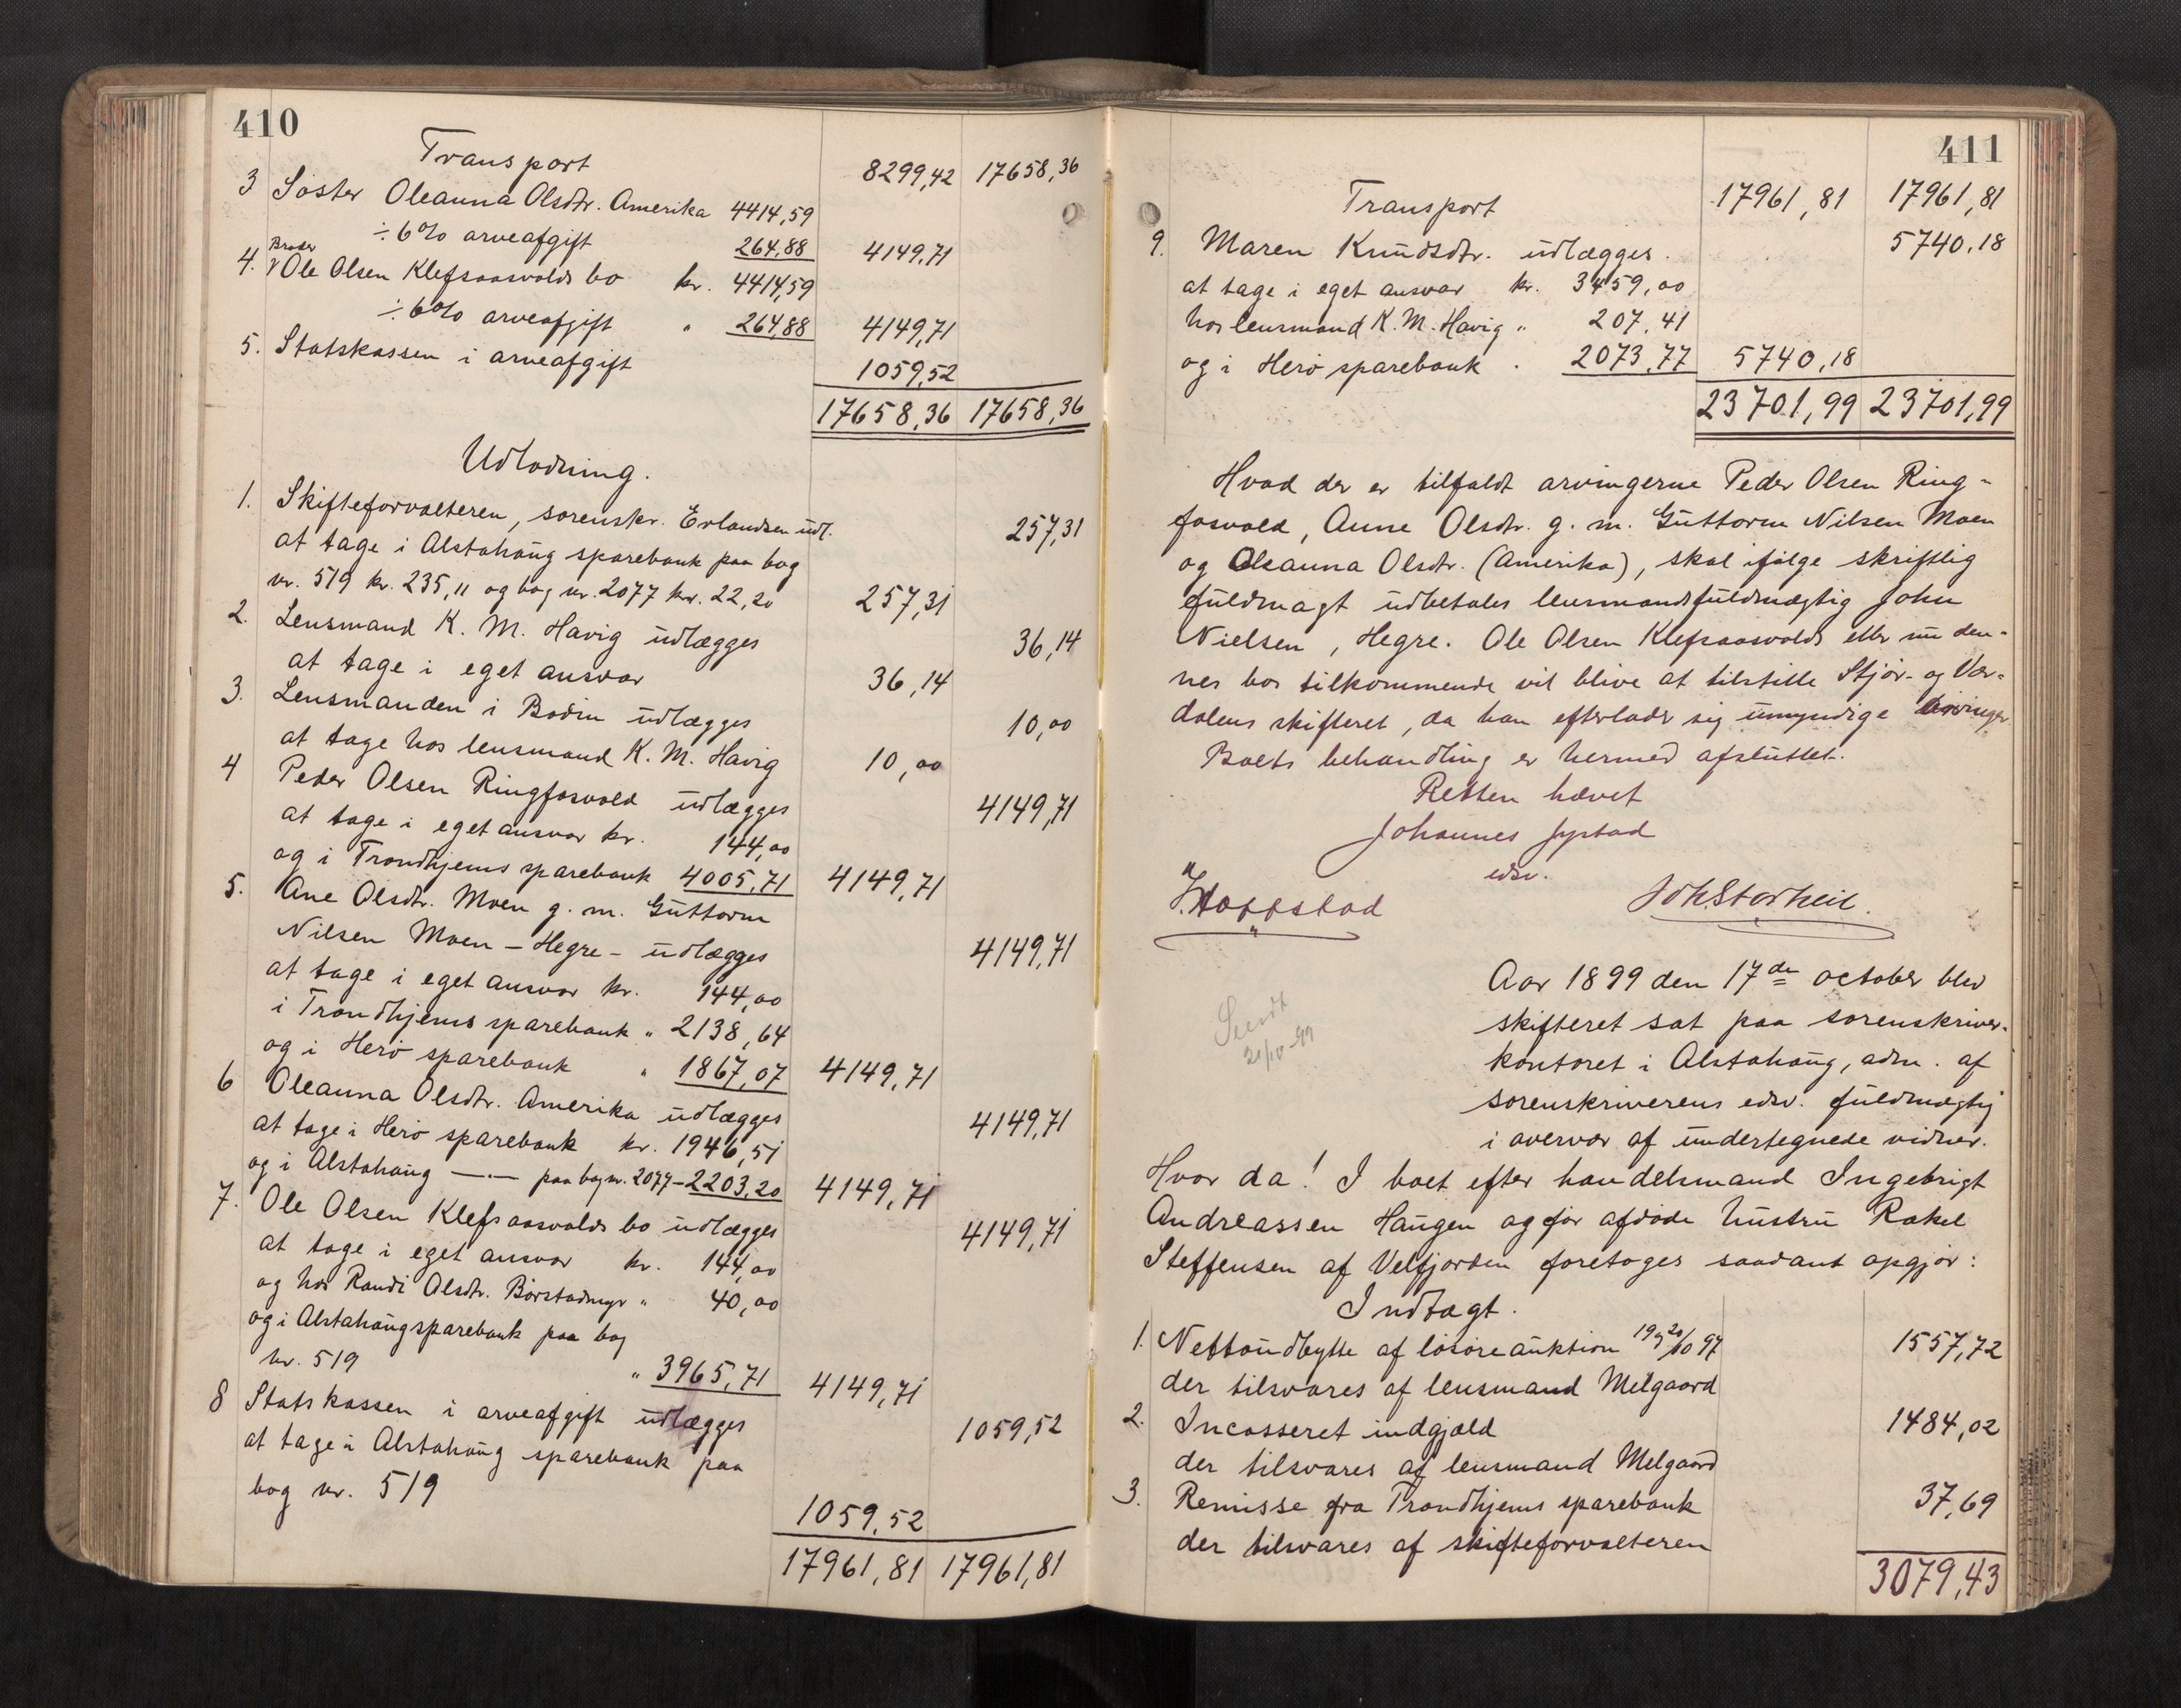 410
Transport 8299,42 17658,36
3 Søster Oleanna Olsdtr. Amerika 4414,59
÷ 6% arveafgift 264,88 4149,71
Broder
4. Ole Olsen Klefsaasvolds bo kr. 4414,59
÷ 6% arveafgift " 264,88 4149,71
5. Statskassen i arveafgift 1059,52
17658,36 17658,36
Udlodning.
1. Skifteforvalteren, sorenskr. Erlandsen udl. 257,31
at tage i Alstahaug sparebank paa bog
nr. 519 kr. 235,11 og bog nr. 2077 kr. 22,20 257,31
2. Lensmand K. M. Havig udlægges 36,14
at tage i eget ansvar 36,14
3. Lensmanden i Bodin udlægges 10,00
at tage hos lensmand K. M. Havig 10,00
4 Peder Olsen Ringfosvold udlægges 4149,71
at tage i eget ansvar kr. 144,00
og i Trondhjems sparebank 4005,71 4149,71
5. Ane Olsdtr. Moen g. m. Guttorm
Nilsen Moen – Hegre – udlægges 4149,71
at tage i eget ansvar kr. 144,00
i Trondhjems sparebank " 2138,64
og i Herø sparebank " 1867,07 4149,71
6 Oleanna Olsdtr. Amerika udlægges 4149,71
at tage i Herø sparebank kr. 1946,51
og i Alstahaug —·— paa bog nr. 2077 – 2203,20 4149,71
7. Ole Olsen Klefsaasvolds bo udlægges 4149,71
at tage i eget ansvar kr. 144,00
og hos Randi Olsdtr. Børstadmyr " 40,00
og i Alstahaug sparebank paa bog
nr. 519 " 3965,71 4149,71
8 Statskassen i arveafgift udlægges 1059,52
at tage i Alstahaug sparebank paa
bog nr. 519 1059,52
17961,81 17961,81
411
Transport 17961,81 17961,81
9. Maren Knudsdtr. udlægges. 5740,18
at tage i eget ansvar kr. 3459,00
hos lensmand K. M. Havig " 207,41
og i Herø sparebank . 2073,77 5740,18
23701,99 23701,99
Hvad der er tilfaldt arvingerne Peder Olsen Ring-
fosvold, Anne Olsdtr. g. m. Guttorm Nilsen Moen
og Oleanna Olsdtr. (Amerika), skal ifølge skriftlig
fuldmagt udbetales lensmandsfuldmægtig John
Nielsen, Hegre. Ole Olsen Klefsaasvolds eller nu den-
nes bos tilkommende vil blive at tilstille Stjør- og Vær-
dalens skifteret, da han efterlader sig umyndige arvinger.
Boets behandling er hermed afsluttet.
Retten hævet
Johannes
edsv.
Joh. Storheil.
Sendt
21/10-99
Aar 1899 den 17de october blev
skifteret sat paa sorenskriver-
kontoret i Alstahaug, adm. af
sorenskriverens edsv. fuldmægtig
i overvær af undertegnede vidner.
Hvor da! I boet efter handelsmand Ingebrigt
Andreassen Haugen og før afdøde hustru Rakel
Steffensen af Velfjorden foretoges saadant opgjør:
Indtægt.
1. Nettoudbytte af løsøreauktion 19 og 20/10 97 1557,72
der tilsvares af lensmand Melgaard
2. Incasseret indgjæld 1484,02
der tilsvares af lensmand Melgaard
3. Remisse fra Trondhjems sparebank 37,69
der tilsvares af skifteforvalteren
3079,43